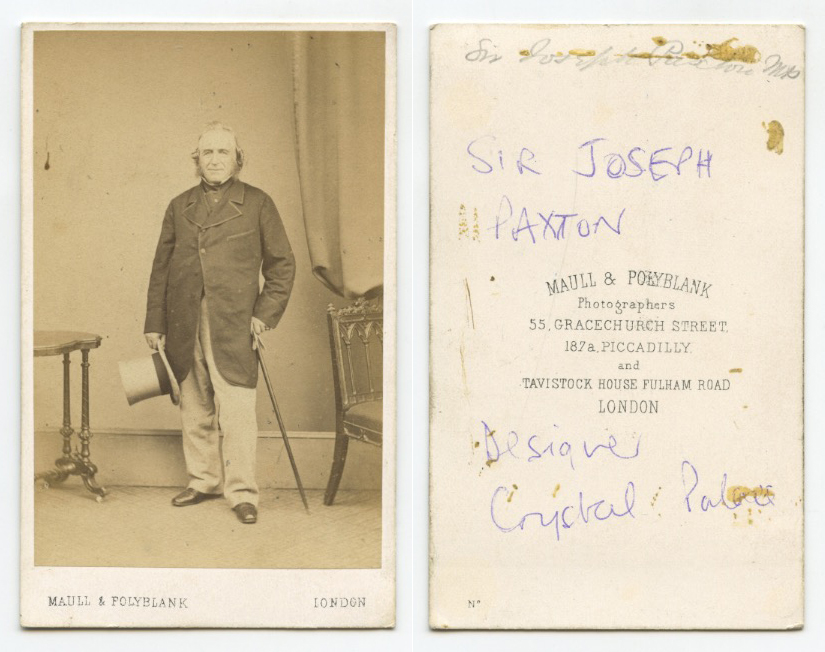 MAULL & POLYBLANK LONDON
Sir Joseph Paxton MP
SIR JOSEPH
PAXTON
MAULL & POLYBLANK
Photographers
55, GRACECHURCH STREET.
187a, PICCADILLY.
and
TAVISTOCK HOUSE FULHAM ROAD
LONDON
Designer
Crystal Palace
Nº